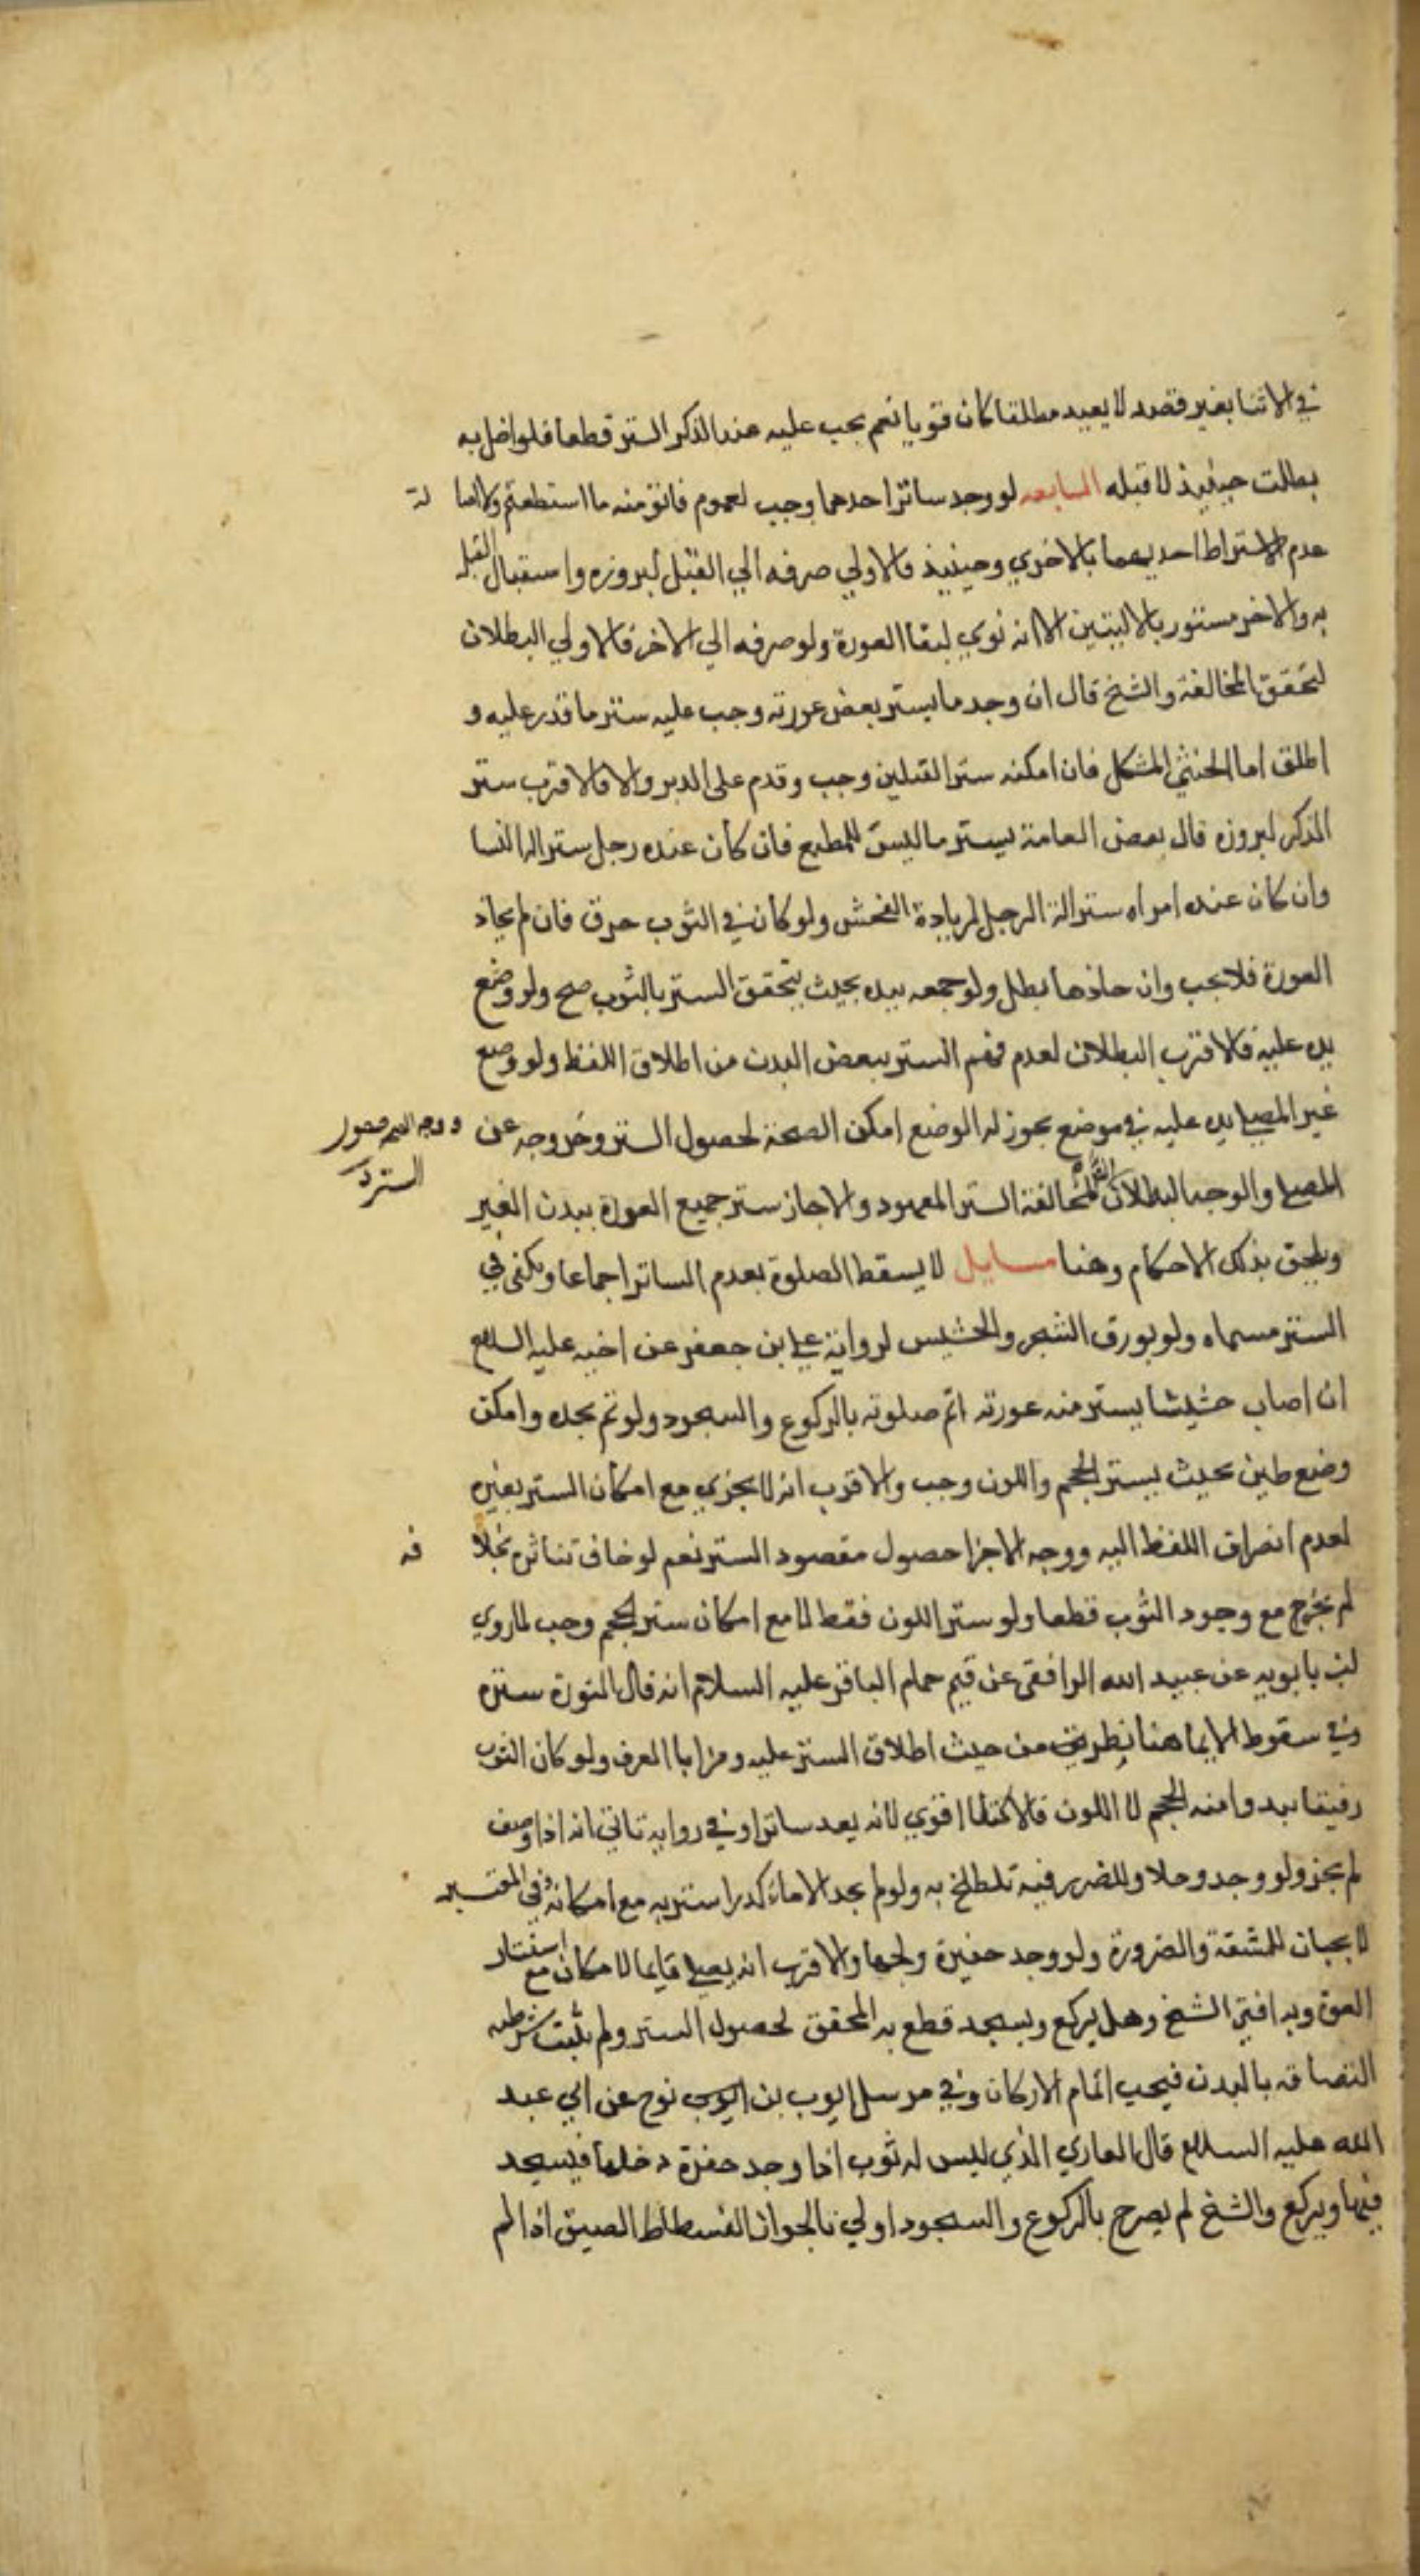 في الاثنا بغير قصد لا يعيد مطلقا كان قويا نعم يجب عليه عند الذكر الستر قطعا فلو اخل به
بطلت حينيذ لا قبله السابعه لو وجد ساترا احدهما وجب لعموم فاتو منه ما استطعتم ولاصا لة
عدم الاشتراط احديهما بالاخري وحينيذ فالاولي صرفه الي القبل لبروزه واستقبال القبلة
به والاخر مستور بالاليتين الا انه نوي لبقا العورة ولو صرفه الي الاخر فالاولي البطلان
لتحقق المخالفة والشيخ قال ان وجد ما يستر بعض عورته وجب عليه ستر ما قدر عليه و
اطلق اما الخنثي المشكل فان امكنه ستر القبلين وجب وقدم على الدبر والا فالاقرب ستر
الذكر لبروزه قال بعض العامة يستر ما ليس للمطلع فان كان عنده رجل ستر الة النسا
وان كان عنده امراه ستر الة الرجل لزيادة الفحش ولو كان في الثوب خرق فان لم يحاذ
العورة فلا يجب وان حاذها بطل ولو جمعه بيده بحيث يتحقق الستر بالثوب صح ولو وضع
يده عليه فالاقرب البطلان لعدم فهم الستر ببعض البدن من اطلاق اللفظ ولو وضع
غير المصلي يده عليه في موضع يجوز له الوضع امكن الصحة لحصول الستر وخروجه عن
ووجه الصحة حصول
الستر
المصلي والوجه البطلان لمخالفة الستر المعهود والا جاز ستر جميع العورة ببدن الغير
ويلحق بذلك الاحكام وهنا مسايل لا يسقط الصلوة بعدم الساتر اجماعا ويكفي في
الستر مسماه ولو بورق الشجر والحشيش لرواية علي بن جعفر عن اخيه عليه السلام
ان اصاب حشيشا يستر منه عورته اتم صلوته بالركوع والسجود ولو لم يجده وامكن
وضع طين بحيث يستر الحجم واللون وجب والاقرب انه لا يجزي مع امكان الستر بغيره
لعدم انصراف اللفظ اليه ووجه الاجزا حصول مقصود الستر نعم لو خاف تناثره بخلا فه
لم يجز مع وجود الثوب قطعا ولو ستر اللون فقط لا مع امكان ستر الحجم وجب لما روي
ابن بابويه عن عبيد الله الرافقي عن قيم حمام الباقر عليه السلام انه قال النورة سترة
وفي سقوط الايما هنا نظر من حيث اطلاق الستر عليه ومن اباا العرف ولو كان الثوب
رقيقا يبدوا منه الحجم لا اللون فالاكتفا اقوي لانه يعد ساترا وفي رواية تاتي انه اذا وصف
لم يجز ولو وجد وحلا وللضرر فيه تلطخ به ولو لم يجد الا ماء كدرا استتر به مع امكانه وفي المعتبر
لا يجبان للمشقة والضرورة ولو وجد حفيرة ولجها والاقرب انه يصلي قايما لامكان مع استتار
العورة وبه افتي الشيخ وهل يركع ويسجد قطع به المحقق لحصول الستر ولم يثبت شرطيه
التصاقه بالبدن فيجب اتمام الاركان وفي مرسل ايوب بن نوح عن ابي عبد
الله عليه السلام قال العاري الذي ليس له ثوب اذا وجد حفرة دخلها فيسجد
فيها ويركع والشيخ لم يصرح بالركوع والسجود اولي بالجواز الفسطاط الضيق اذا لم